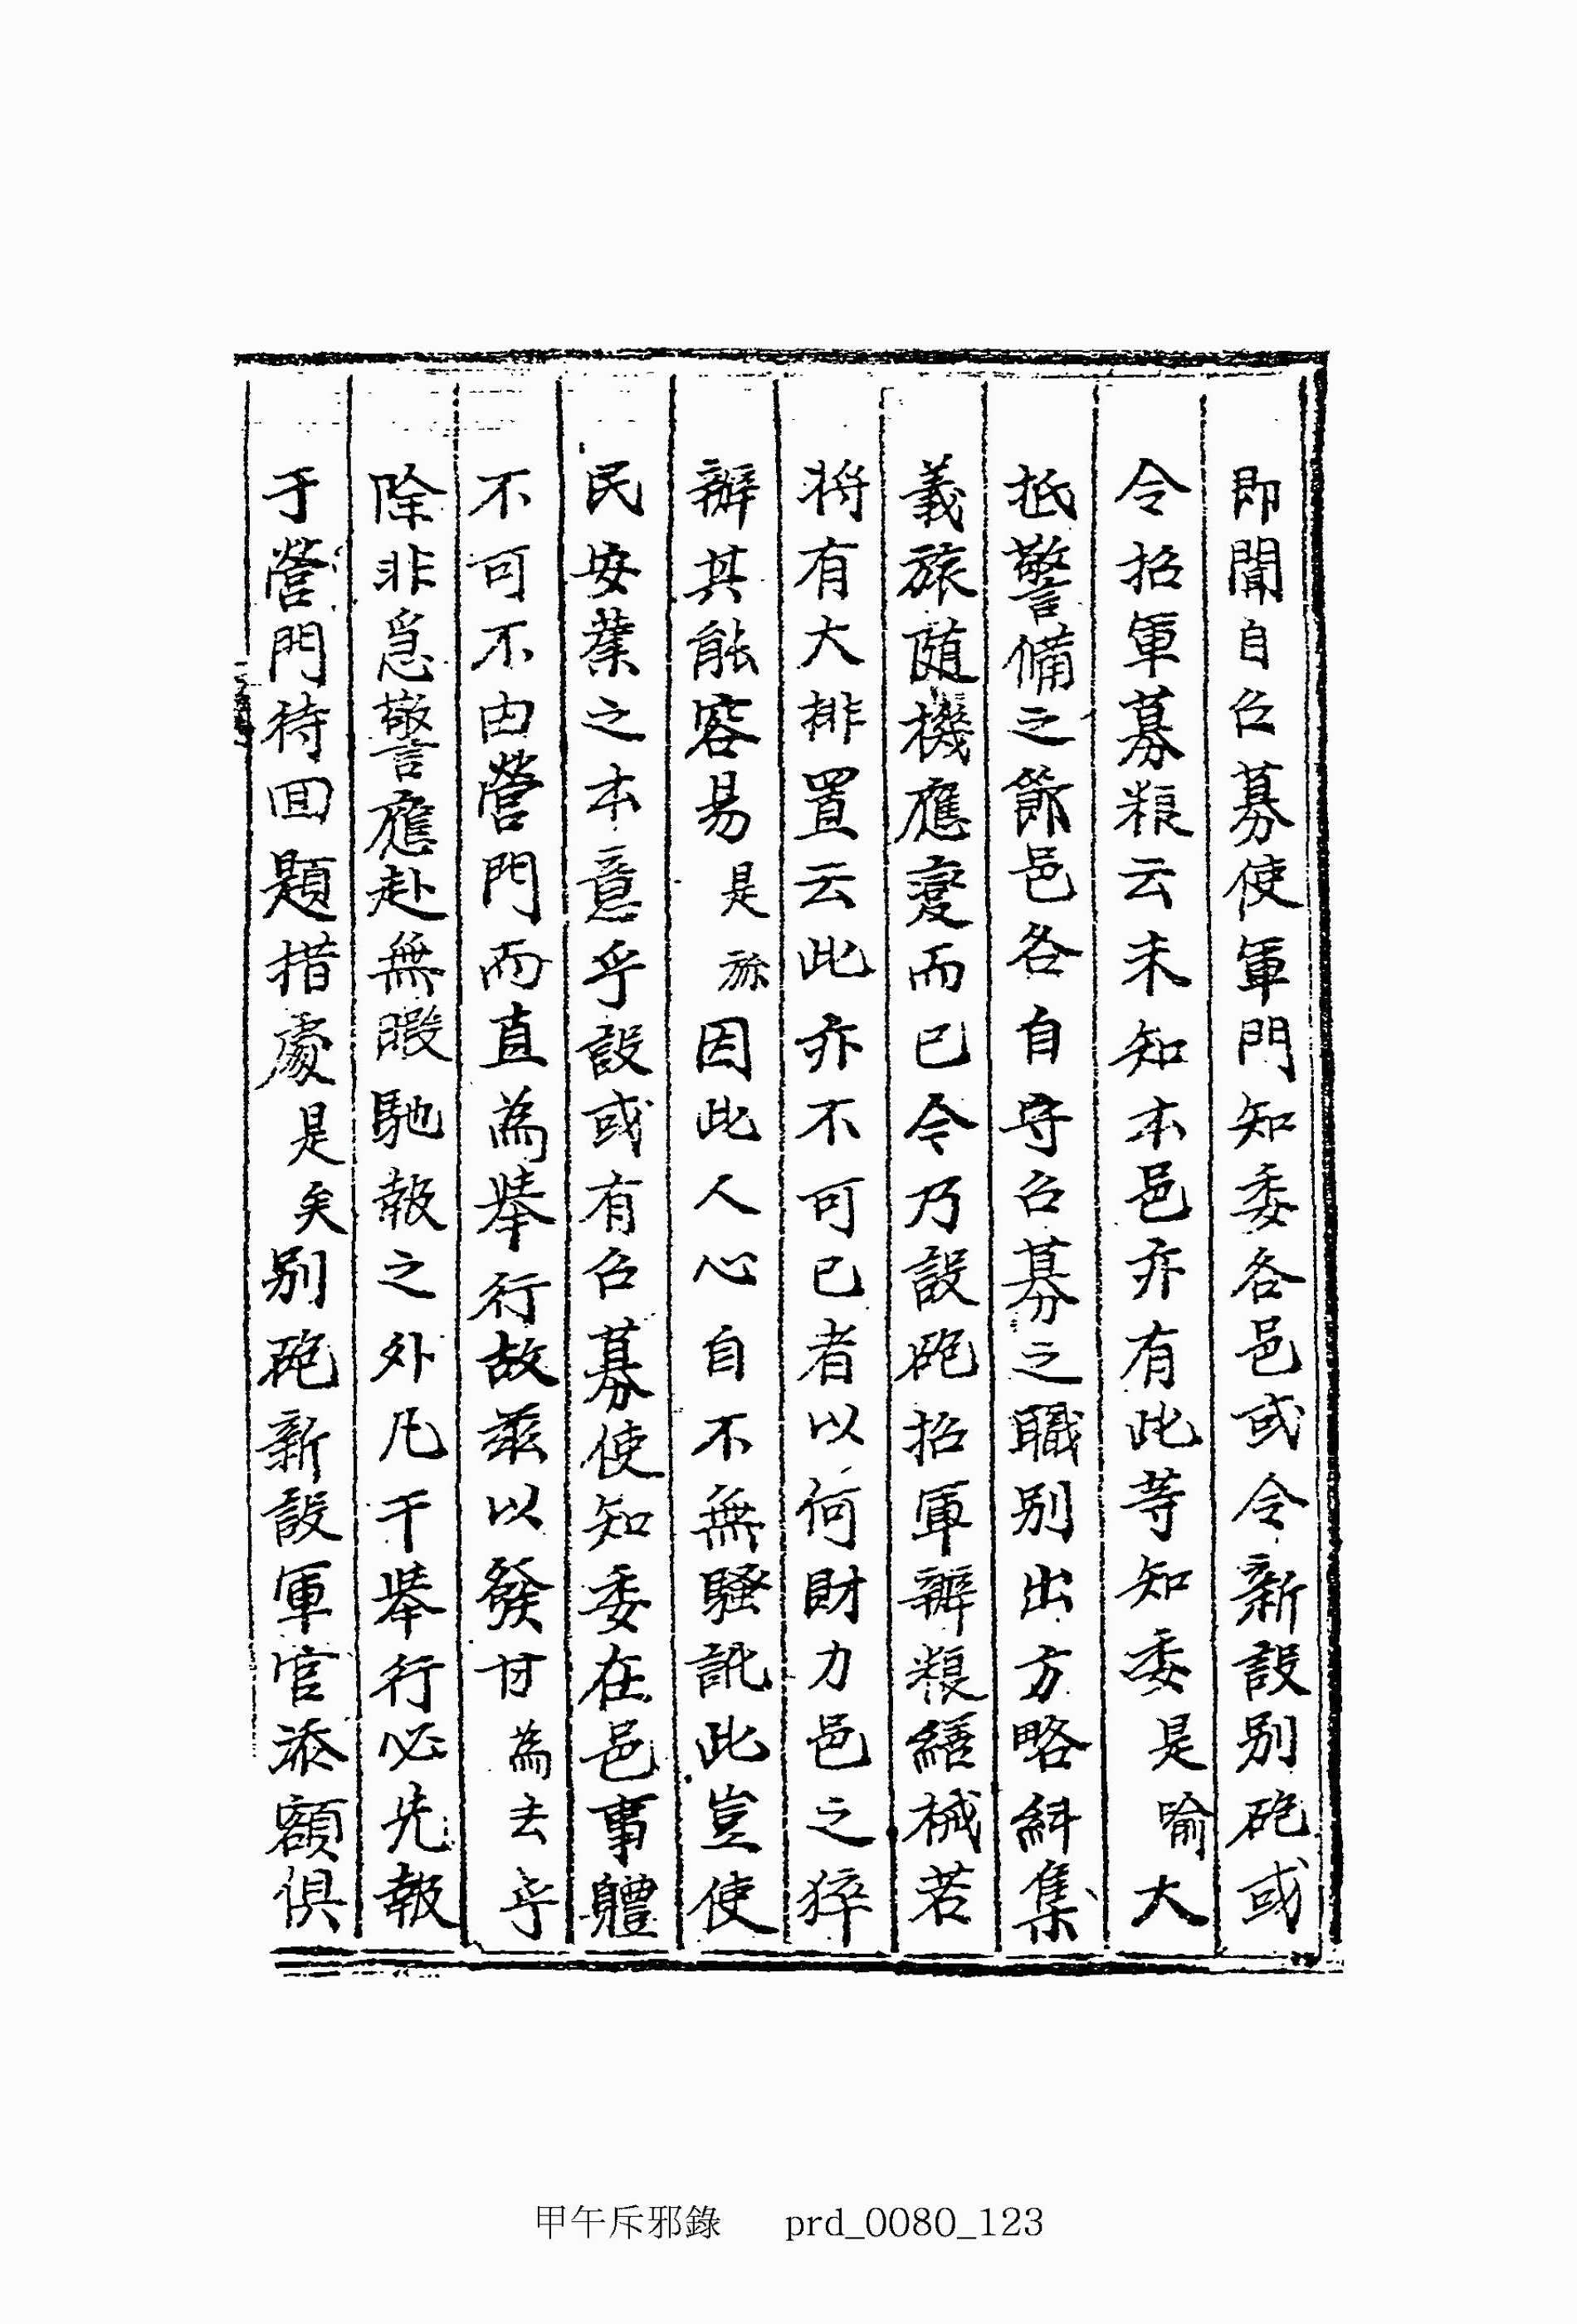 即聞自召募使軍門知委各邑或令新設別砲或
令招軍募粮云未知本邑亦有此等知委是喩大
抵警備之節邑各自守召募之職別出方略糾集
義旅随機應變而已今乃設砲招軍辦粮繕械若
將有大排置云此亦不可已者以何財力邑之猝
辦其能容易是旀因此人心自不無騷訛此豈使
民安業之本意乎設或有召募使知委在邑事軆
不可不由營門而直為擧行故茲以發甘為去乎
除非急警應赴無暇馳報之外凡干擧行必先報
于營門待回題措處是矣別砲新設軍官添額俱
甲午斥邪錄 prd_0080_123